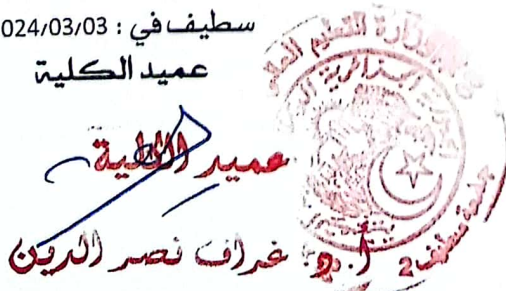 سطيف في : 024/03/03
عميد الكلية
عميد الكلية
أ.د. غراف نصر الدين
وزارة التعليم العالي
الجزائرية
جامعة سطيف 2